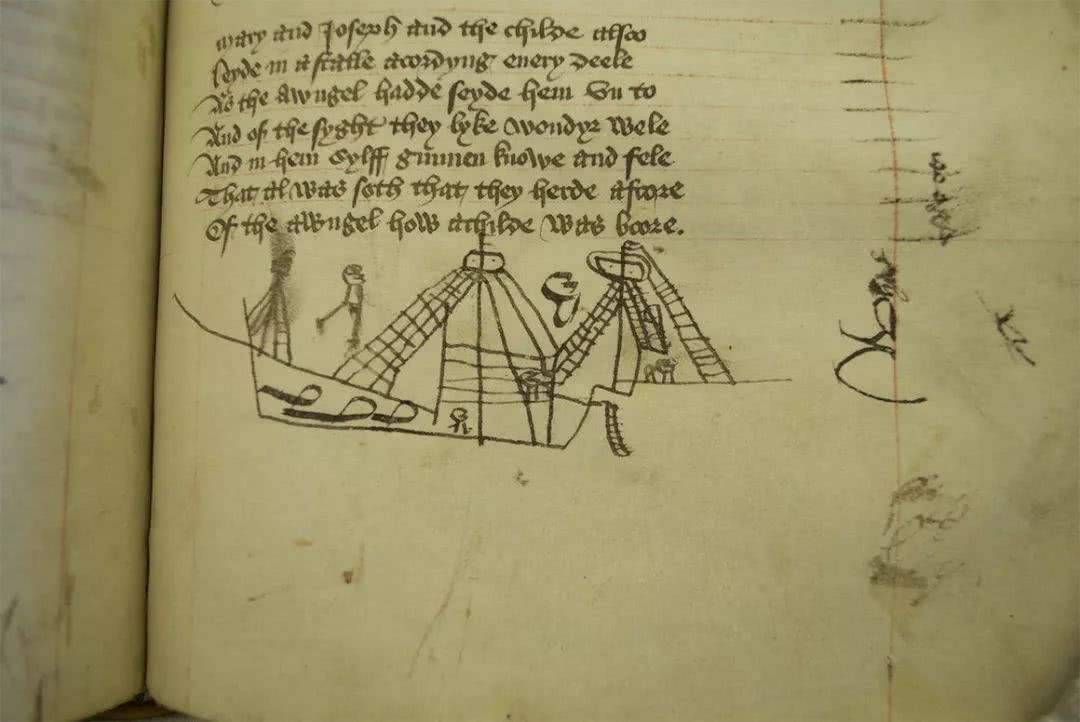 mary and Joseph and the childe alsoo
leyde in a stalle acordyng euery deele
As the Awngel hadde seyde hem vn to
And of the syght they lyke wondyr wele
And in hem sylff gunnen knowe and fele
That al was soth that they herde afoore
Of the awngel how achilde was boore.